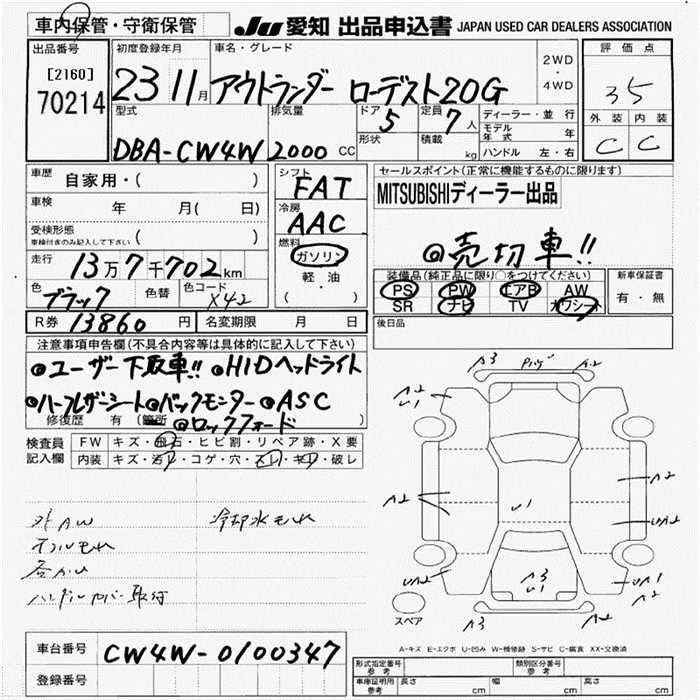 車内保管・守衛保管
JU 愛知 出品申込書 JAPAN USED CAR DEALERS ASSOCIATION
出品番号 初度登録年月 車名・グレード 2WD ・ 4WD 評価点
[2160]
70214
23 11月 アウトランダー ローデスト20G 35
型式 排気量 ドア 5 定員 7人 ディーラー・並行 外装 内装
形状 積載 kg モデル年式 年 C C
DBA-CW4W 2000 CC ハンドル 左・右
車歴 自家用・( ) シフト FAT セールスポイント(正常に機能するものに限ります)
MITSUBISHIディーラー出品
車検 年 月( 日) 冷房 AAC
受検形態 車検付きのみ記入して下さい ( ) 燃料 ガソリン ◎売切車!!
走行 13万7千702km 軽・油
装備品(純正品に限り○をつけてください) 新車保証書
色 ブラック 色替 色コード X42 ( ・ )
PS PW エアB AW 有・無
SR ナビ TV カワシート
R券 13860円 名変期限 月 日 後日品
注意事項申告欄(不具合内容等は具体的に記入して下さい)
◎ユーザー下取車!! ◎HIDヘッドライト
◎ハーフレザーシート◎バックモニター◎ASC
修復歴 有 (箇所 ◎ロックフォード
検査員 FW キズ・飛石・ヒビ割・リペア跡・X要
記入欄 内装 キズ・汚レ・コゲ・穴・スレ・キレ・破レ
A3 A2
A2 U1
A2 U1 A2
UA2
UA2 A3 U1 UA1 A2
A3 A2
外AW 冷却水モレ
オイルモレ
ハンドルカバー取付
スペア
A-キズ E-エクボ U-凹み W-補修跡 S-サビ C-腐食 XX-交換済
車台番号 CW4W-0100347
登録番号
形式指定番号 参考 類別区分番号 参考
車庫証明用 参考 長さ cm 幅 cm 高さ cm